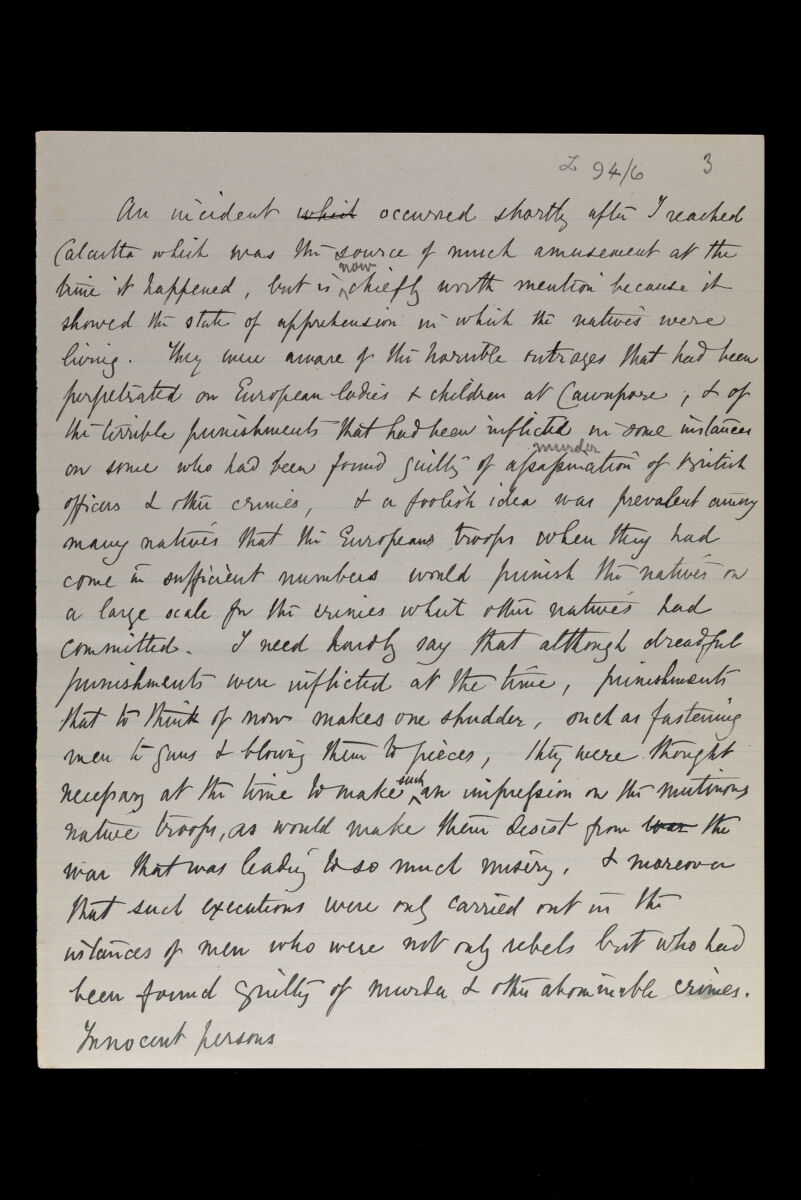 L 94/6 3
An incident which occurred shortly after I reached
Calcutta which was the source of much amusement at the
now
time it happened, but is chiefly worth mention because it
showed the state of apprehension in which the natives were
living. They were aware of the horrible outrages that had been
perpetrated on European ladies & children at Cawnpore, & of
the terrible punishments that had been inflicted in some instances
murder
on some who had been found guilty of assassination of British
officers & other crimes, & a foolish idea was prevalent among
many natives that the Europeans troops when they had
come in sufficient numbers would punish the natives on
a large scale for the crimes which other natives had
committed. I need hardly say that although dreadful
punishments were inflicted at the time, punishments
that to think of now makes one shudder, such as fastening
men to guns & blowing them to pieces, they were thought
such
necessary at the time to make an impression on the mutinous
native troops, as would make them desist from war the
war that was leading to so much misery, & moreover
that such executions were only carried out in the
instances of men who were not only rebels but who had
been found guilty of murder & other abominable crimes.
Innocent persons